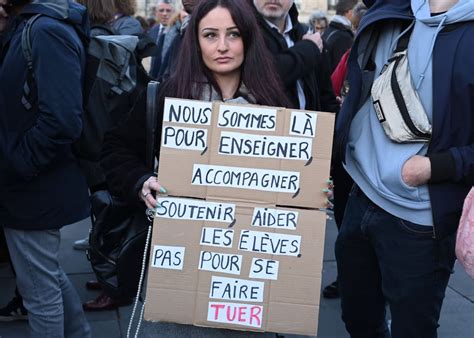 NOUS SOMMES LÀ
POUR, ENSEIGNER,
ACCOMPAGNER,
SOUTENIR, AIDER
LES ÉLÈVES,
PAS POUR SE
FAIRE
TUER